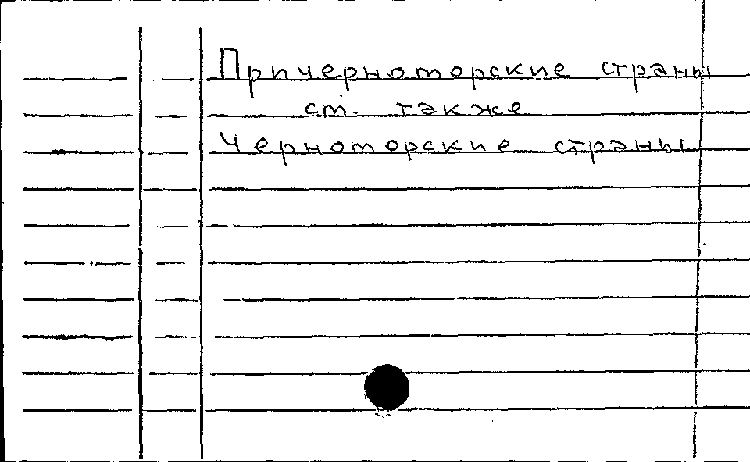 Причерноморские страны
см. также
Черноморские страны